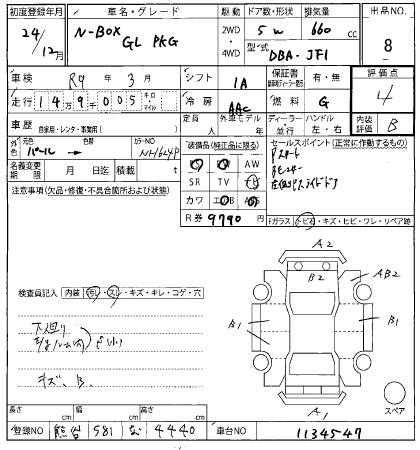 初度登録年月 車名・グレード 駆動 ドア数・形状 排気量 出品NO
24/12月 N-BOX GL PKG 2WD・4WD 5W 660 8
型式 DBA-JF1
車検 R9年3月 シフト IA 保証書 有・無 評価点
走行 149千005 キロ マイル 冷房 AAC 燃料 G 4
車歴 自家用・レンタ・事業用( ) 定員 人 外車モデル 年 ディーラー・並行 ハンドル 左・右 内装評価 B
外色 元色 パール → 色替 カラーNO NH624P
装備品(純正品に限る) セールスポイント(正常に作動するもの)
名義変更期限 月 日迄 積載 t
AW
SR TV
カワ エアB
R券 9790 円
Pスタート
Bモニター
左側PスライドドT
注意事項(欠品・修復・不具合箇所および状態)
Fガラス トビ石・キズ・ヒビ・ワレ・リペア跡
A2
B2 AB2
B1 B1
A1
スペア
検査員記入 内装 汚レ・スレ・キズ・キレ・コゲ・穴
キズ、B.
長さ cm 幅 cm 高さ cm
登録NO 熊谷 581 な 4440 車台NO 1134547